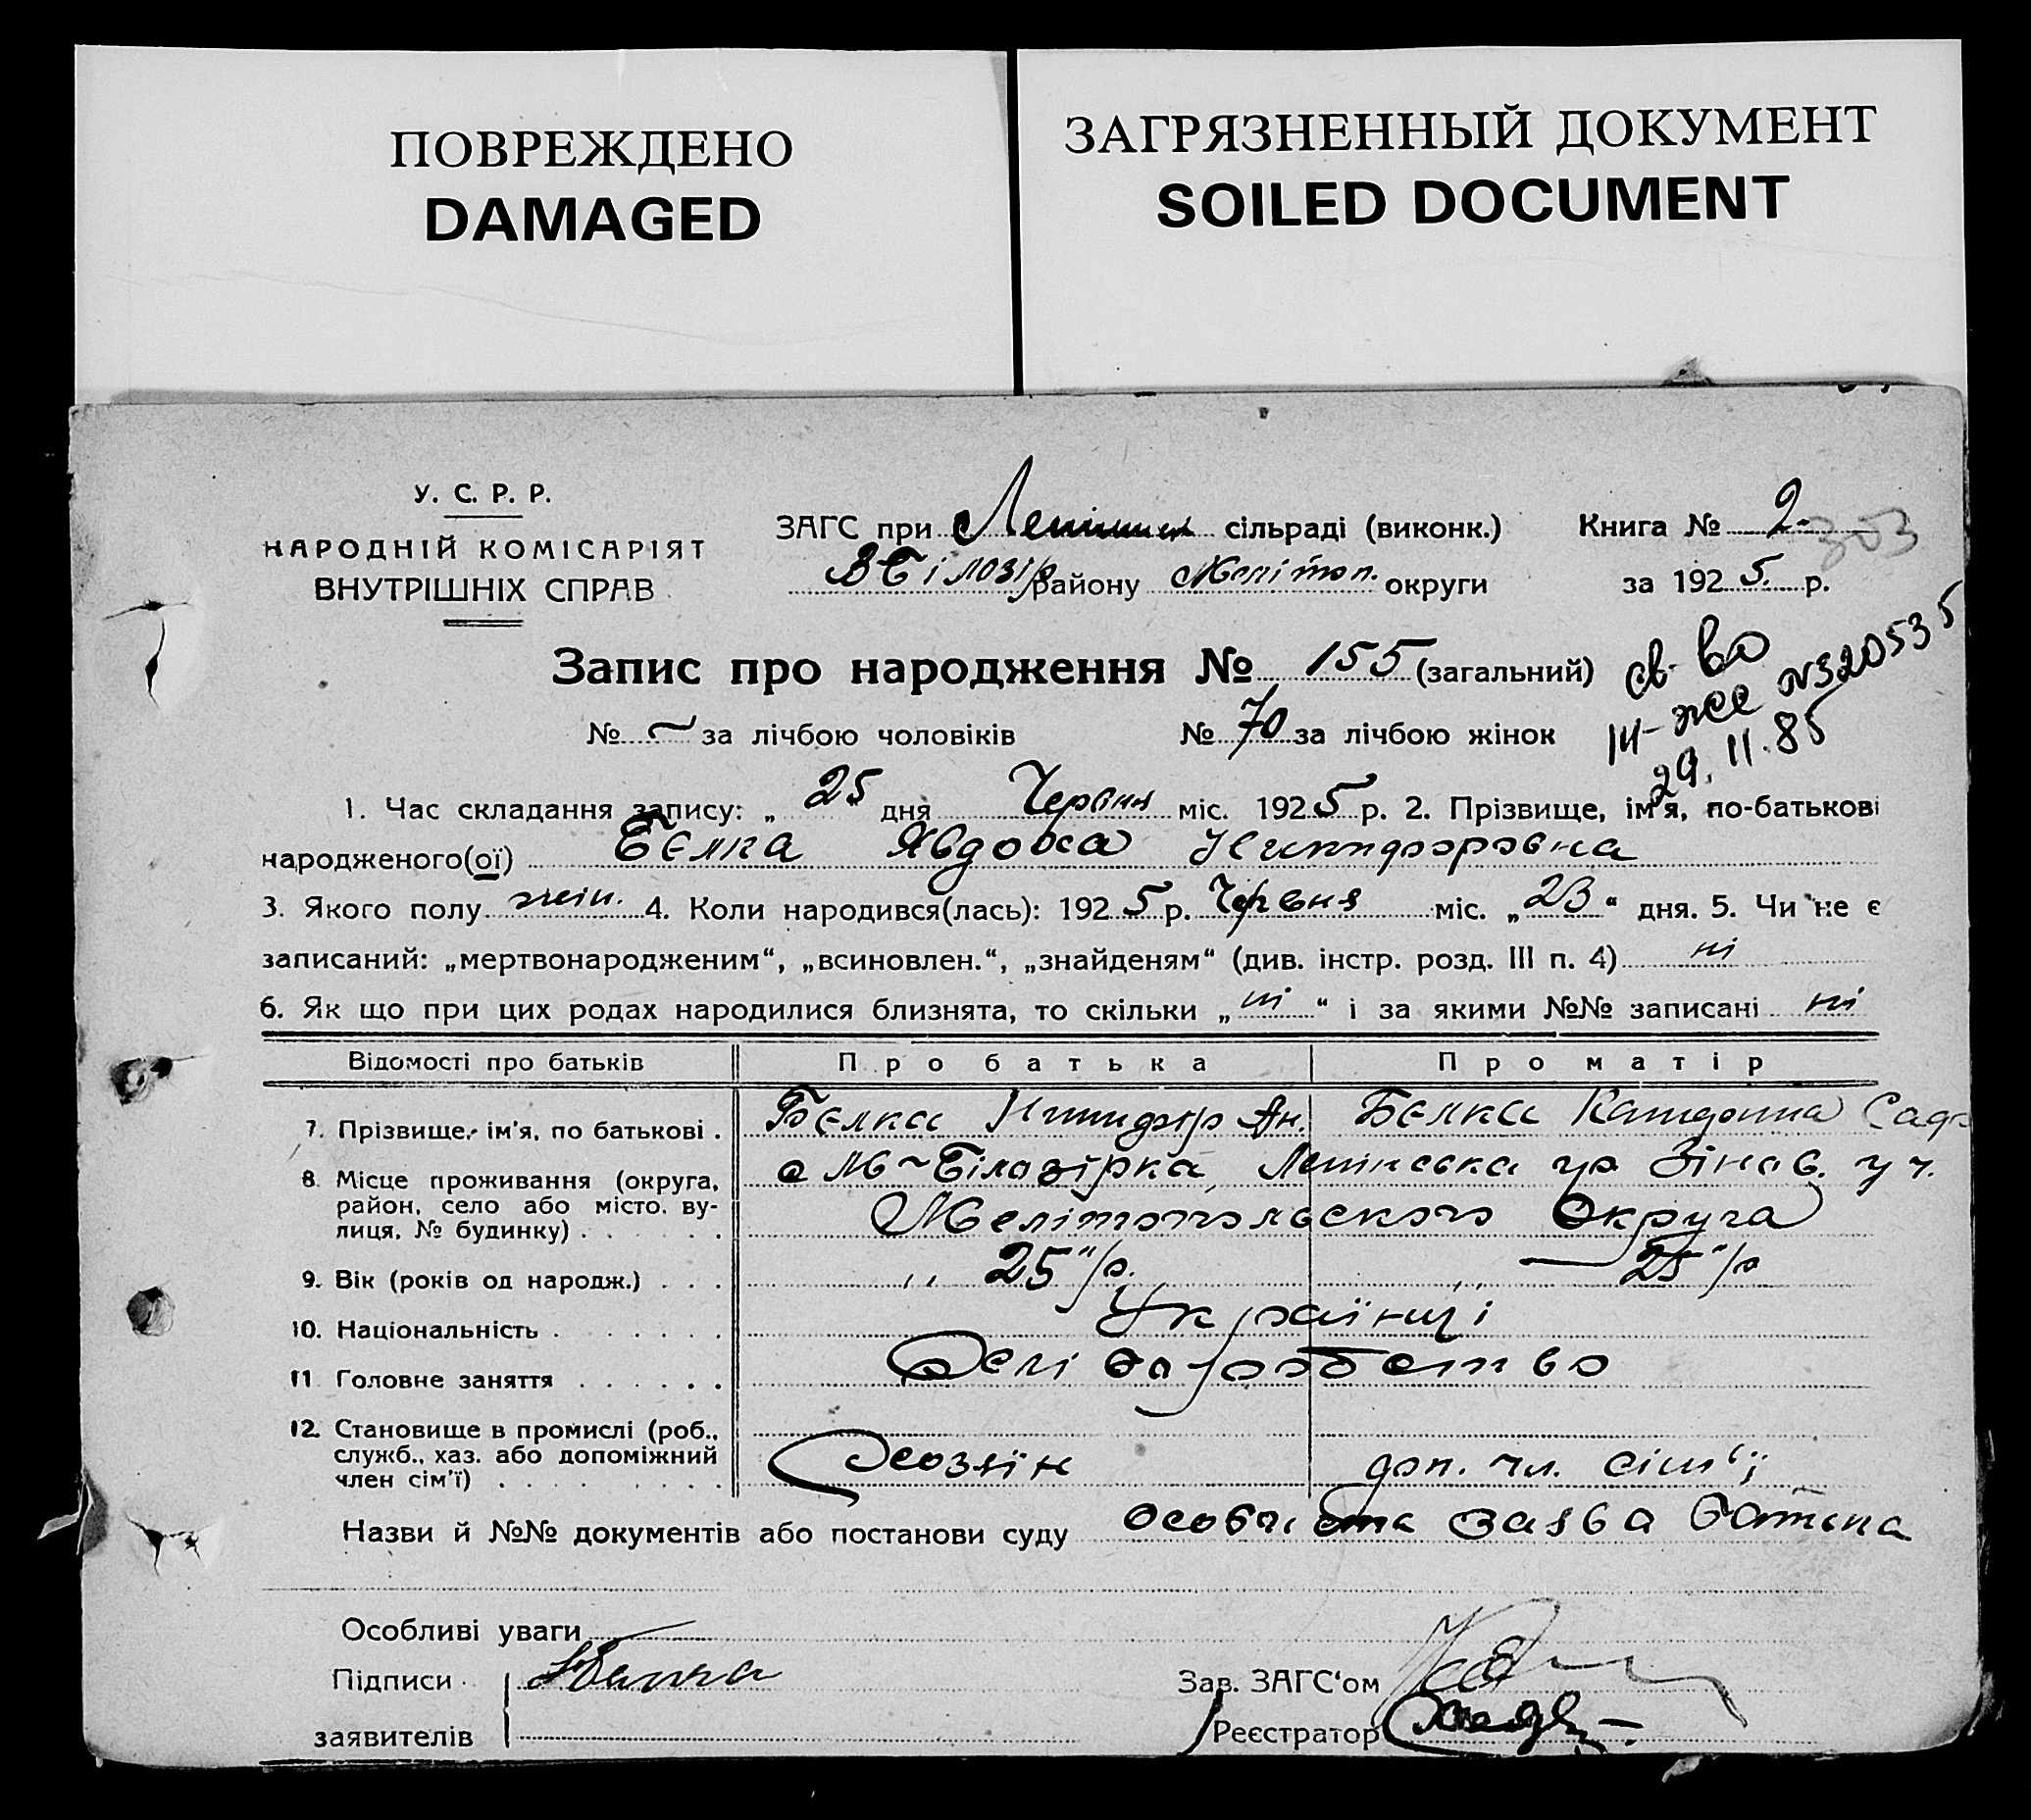 ПОВРЕЖДЕНО
DAMAGED
ЗАГРЯЗНЕННЫЙ ДОКУМЕНТ
SOILED DOCUMENT
У. С. Р. Р.
НАРОДНІЙ КОМІСАРІЯТ
ВНУТРІШНІХ СПРАВ
ЗАГС при сільраді (виконк.)
Книга № 2
303
району Мелітоп. округи
за 1925 р.
Запис про народження № 155 (загальний)
св-во
ІІІ-жс №320535
29.11.85
№ — за лічбою чоловіків № 70 за лічбою жінок
1. Час складання запису: „ 25 дня Червня міс. 1925 р. 2. Прізвище, ім'я, по-батькові
народженого(ої) Бєлка Явдоха Никифоровна
3. Якого полу жін. 4. Коли народився(лась): 1925 р. Червня міс. „23“ дня. 5. Чи не є
записаний: „мертвонародженим“, „всиновлен.“, „знайденям“ (див. інстр. розд. III п. 4) ні
6. Як що при цих родах народилися близнята, то скільки „ні“ і за якими №№ записані ні
Відомості про батьків Про батька Про матір
7. Прізвище, ім'я, по батькові . Бєлка Никифор Ан. Бєлка
8. Місце проживання (округа, район, село або місто, вулиця, № будинку) . . . . . . Білозірка, Ленінська
Мелітопольского Округа
9. Вік (років од народж.) . . . „ 25"/р. „ — 25"/р
10. Національність . . . . . . . Українці
11 Головне заняття . . . . . . Селі
12. Становище в промислі (роб., служб., хаз. або допоміжний член сім'ї) . . . . . . . . Хозяїн доп. чл. сім'ї
Назви й №№ документів або постанови суду особиста заява батька
Особливі уваги
Підписи Бєлка
Зав. ЗАГС'ом
заявителів
Реєстратор